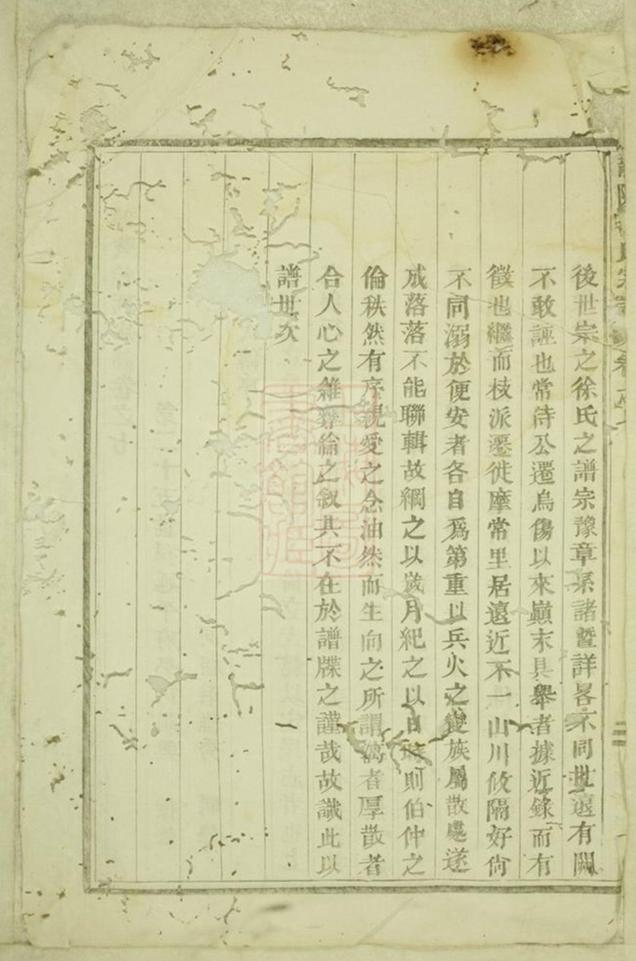 後世宗之徐氏之譜宗豫章諸暨詳畧不同世遠有闕
不敢誣也常侍公遷烏傷以來巔末具舉者據近錄而有
徵也繼而枝派遷徙摩常里居遠近不一山川攸隔好尚
不同溺於便安者各自爲第重以兵火之變族屬散處遂
成落落不能聯輯故綱之以歲月紀之以則伯仲之
倫秩然有序親愛之念油然而生向之所謂者厚散者
合人心之維倫之敘其不在於譜牒之謹哉故識此以
譜世次
氏宗譜卷之